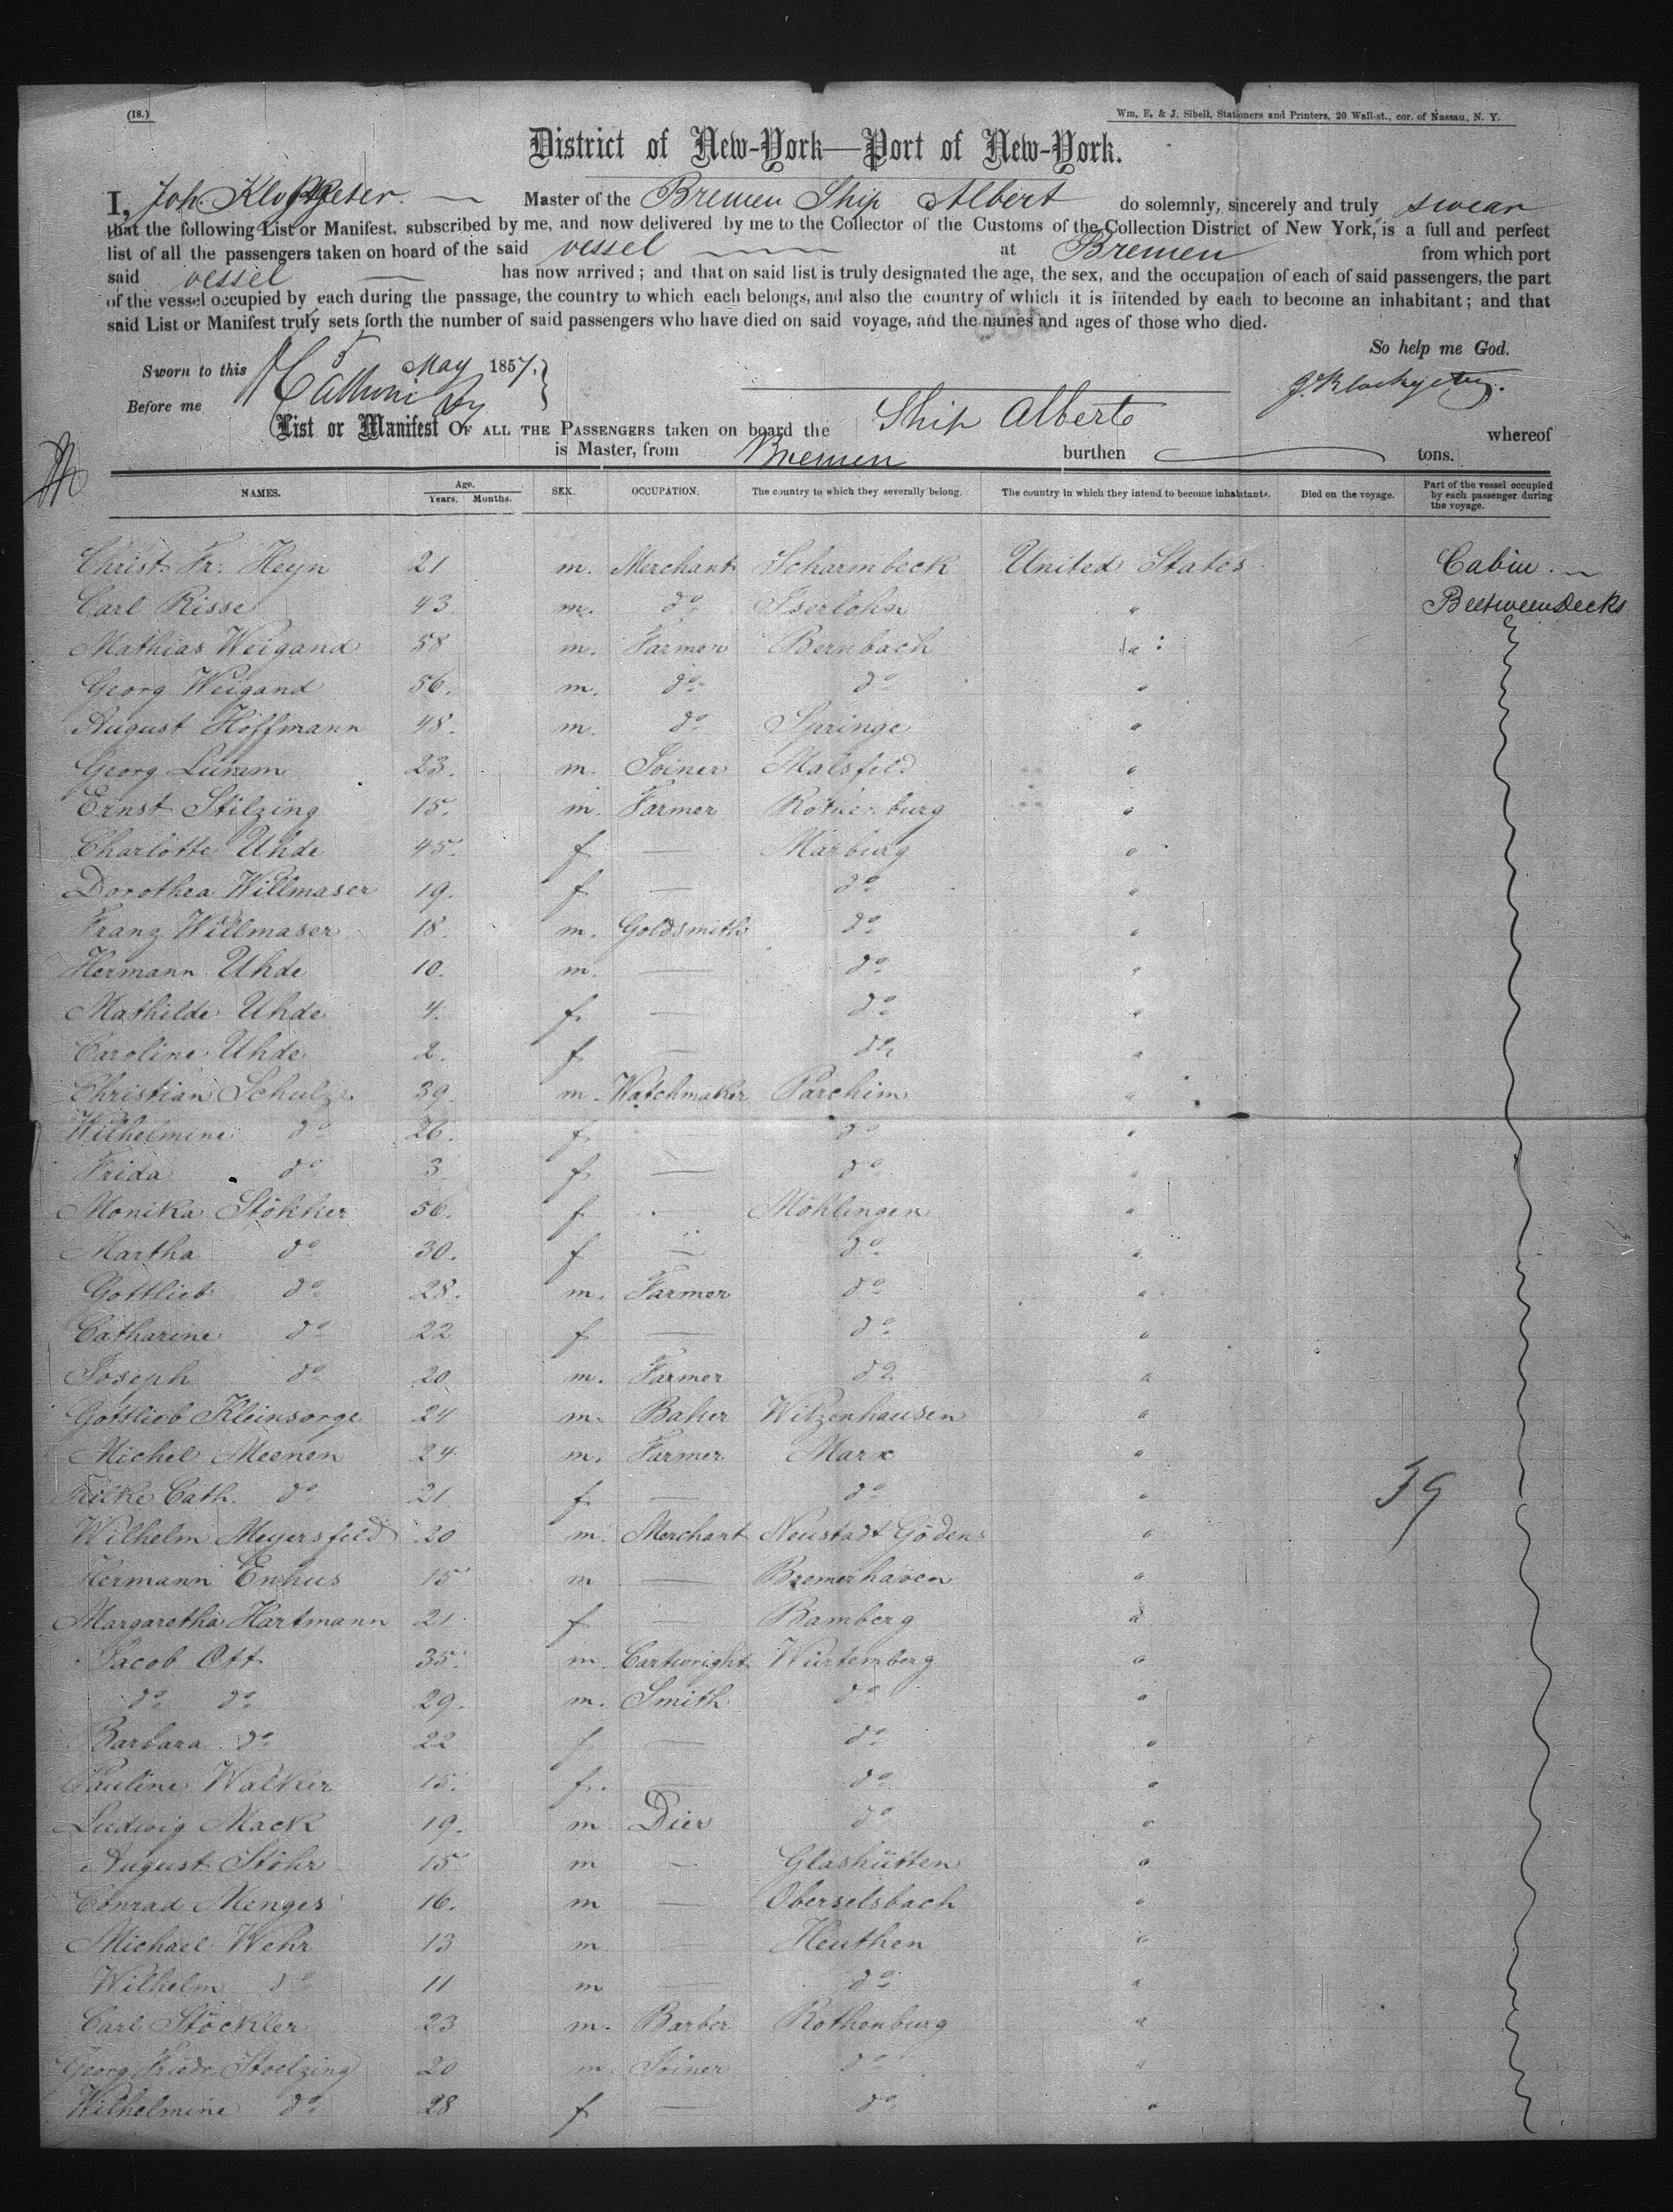 (18.)
Wm. E. & J. Sibell, Stationers and Printers, 20 Wall-st., cor. of Nassau, N. Y.
District of New-York—Port of New-York.
I, Joh. Master of the Bremen Ship Albert do solemnly, sincerely and truly swear
that the following List or Manifest, subscribed by me, and now delivered by me to the Collector of the Customs of the Collection District of New York, is a full and perfect
list of all the passengers taken on board of the said vessel at Bremen from which port
said vessel has now arrived; and that on said list is truly designated the age, the sex, and the occupation of each of said passengers, the part
of the vessel occupied by each during the passage, the country to which each belongs, and also the country of which it is intended by each to become an inhabitant; and that
said List or Manifest truly sets forth the number of said passengers who have died on said voyage, and the names and ages of those who died.
So help me God.
Sworn to this 5 May 1857,
Before me
List or Manifest OF ALL THE PASSENGERS taken on board the Ship Albert whereof
is Master, from Bremen burthen tons.
NAMES. Age. Years. Months. SEX. OCCUPATION. The country to which they severally belong. The country in which they intend to become inhabitants. Died on the voyage. Part of the vessel occupied by each passenger during the voyage.
Christ. Fr. Heyn 21 m. Merchant Scharmbeck United States Cabin
Carl Risse 43 m. do Iserlohn " BetweenDecks
Mathias Weigand 58 m. Farmer Bernbach "
Georg Weigand 56. m. do do "
August Hoffmann 48. m. do Springe "
Georg Lumm 23. m. Joiner Malsfeld "
Ernst Stilzing 15. m. Farmer Rothenburg "
Charlotte Uhde 45. f — Marburg "
Dorothea Willmaser 19. f — do "
Franz Willmaser 18. m. Goldsmith do "
Hermann Uhde 10. m. — do "
Mathilde Uhde 4. f — do "
Caroline Uhde 2. f — do "
Christian Schulze 39. m. Watchmaker Parchim "
Wilhelmine do 26. f do "
Frida do 3 f — do "
Monika Stökker 56. f — Möhlingen "
Martha do 30. f — do "
Gottlieb do 28. m. Farmer do "
Catharine do 22 f — do "
Joseph do 20 m. Farmer do "
Gottlieb Kleinsorge 24 m. Baker Witzenhausen "
Michel Meenen 24 m. Farmer Marx "
Cath. do 21 f — do " 39
Wilhelm Meyersfeld 20 m. Merchant Neustadt Gödens "
Hermann Enhus 15 m — Bremerhaven "
Margaretha Hartmann 21 f — Bamberg "
Jacob Ott 35. m. Cartwright Würtemberg "
do do 29. m. Smith do "
Barbara do 22 f — do "
Pauline Walker 15. f. — do "
Ludwig Mack 19. m Dier do "
August Stöhr 15 m — Glashütten "
Conrad Menges 16. m — Oberselsbach "
Michael Wehr 13 m — Heuthen "
Wilhelm do 11 m — do "
Carl Stöckler 23 m. Barber Rothenburg "
Georg Friedr. Stoelzing 20 m Joiner do "
Wilhelmine do 28 f — do "